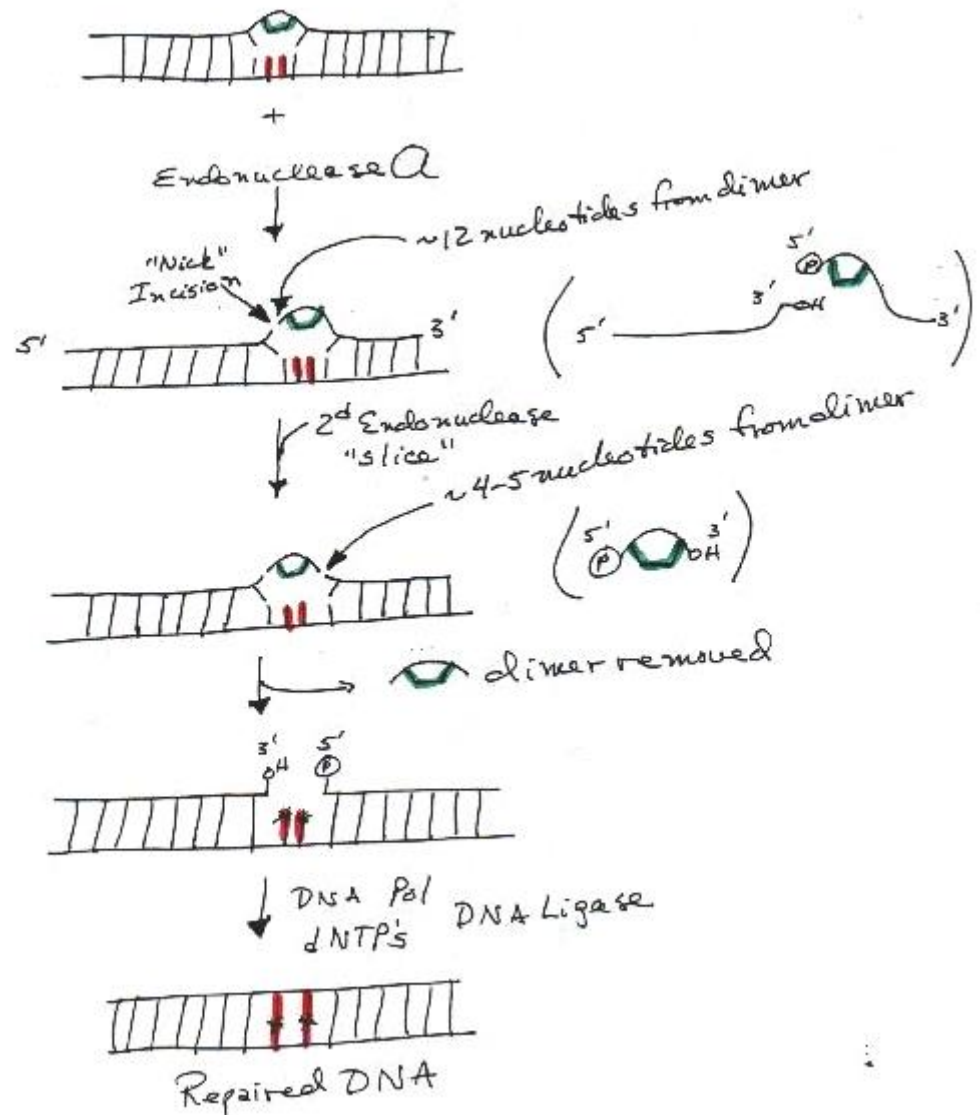 +
Endonuclease a
"Nick"
Incision
~12 nucleotides from dimer
5'
P
3'
OH
5'
3'
5'
3'
2d Endonuclease
"slice"
~4-5 nucleotides from dimer
5'
3'
P
OH
dimer removed
3'
OH
5'
P
DNA Pol
dNTP's
DNA Ligase
Repaired DNA